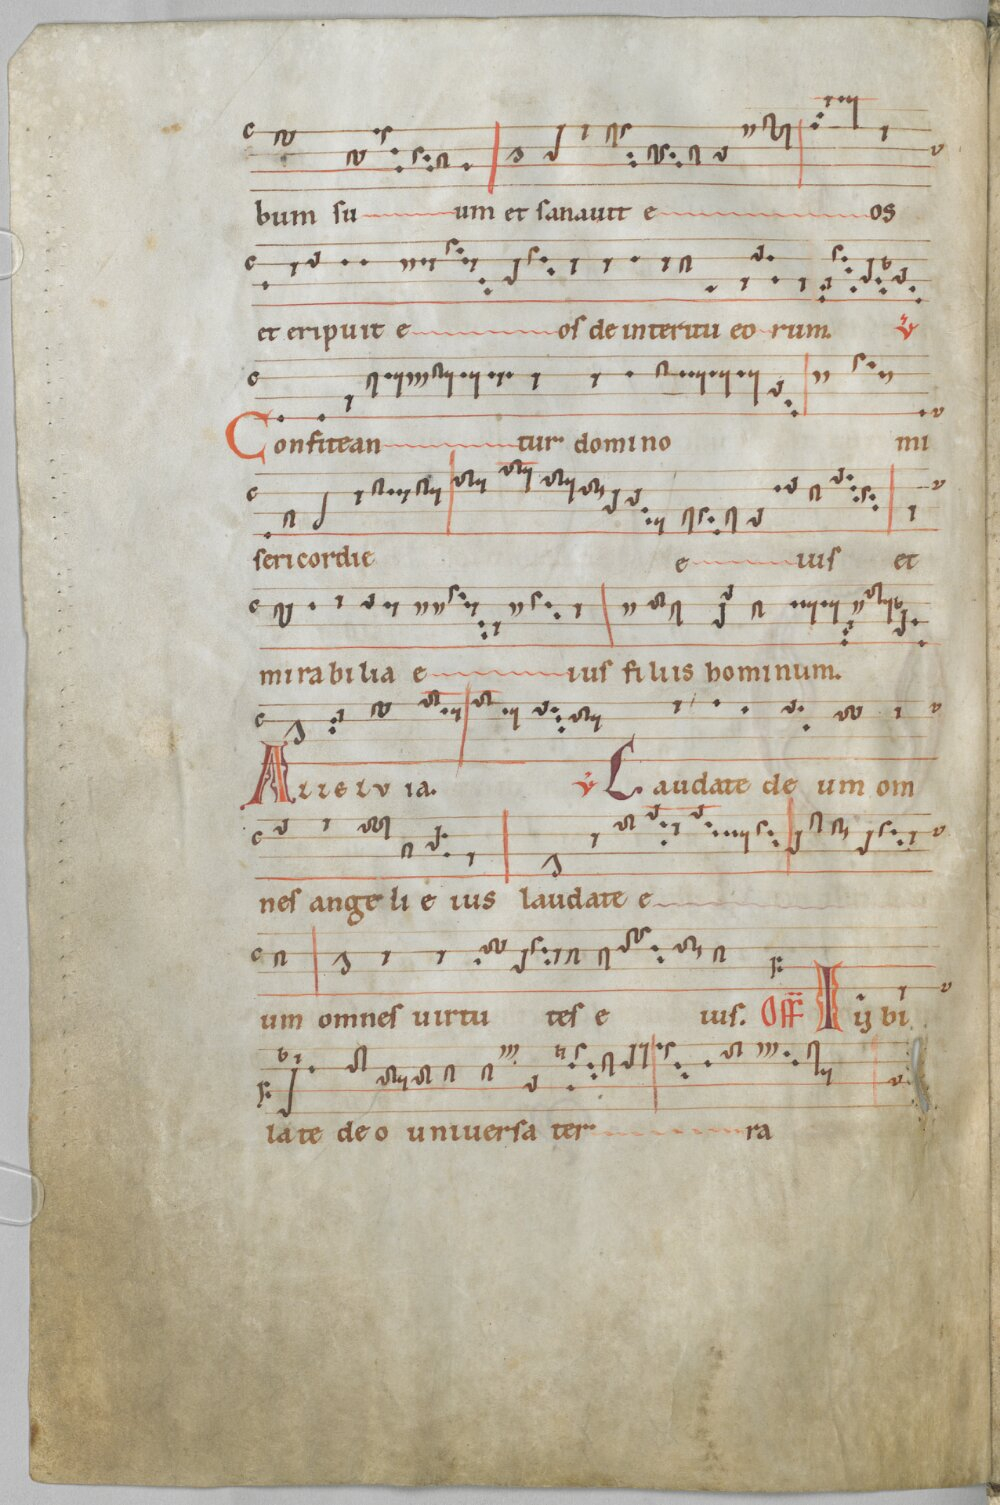 bum su um et sanauit e os
et eripuit e os de interitu eo rum. ℣
Confitean tur domino mi
sericordie e ius et
mirabilia e ius filiis hominum.
Alleluia. ℣ Laudate de um om
nes angeli e ius laudate e
um omnes uirtu tes e ius. Off Iubi
late deo uniuersa ter ra